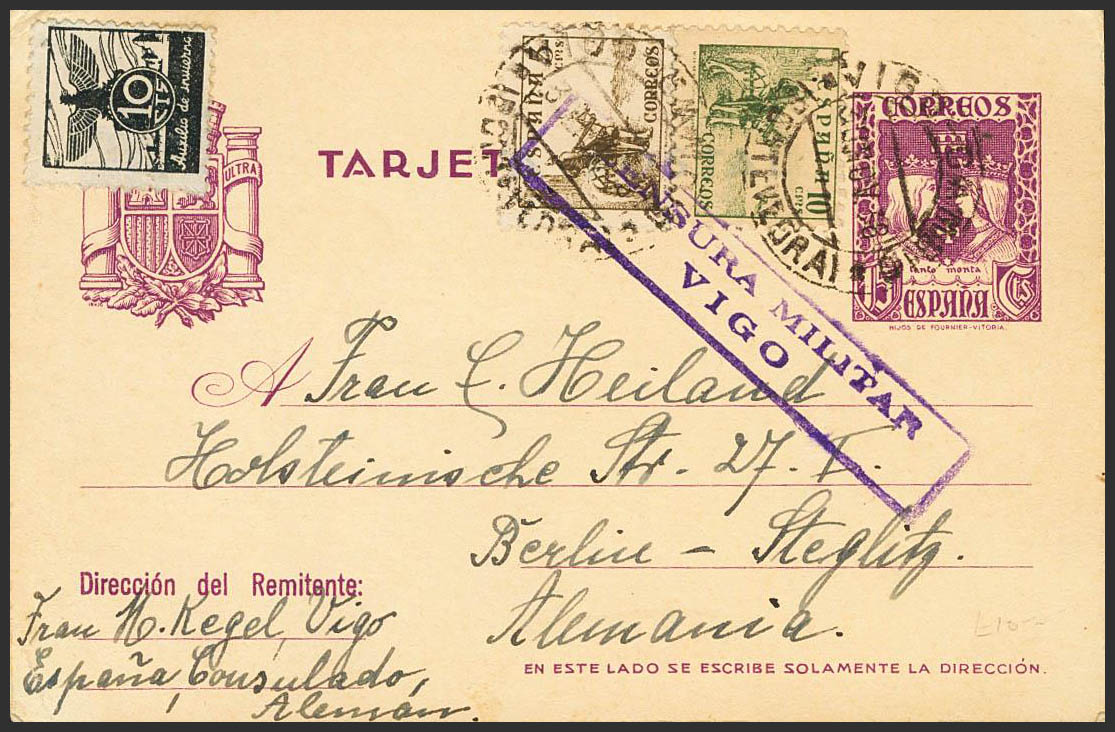 10
CTS
Auxilio de Invierno
ULTRA
TARJET
ESPAÑA
CORREOS
España
10 cts
CORREOS
VIGO
PONTEVEDRA
CORREOS
tanto monta
15 Cts
ESPAÑA
HIJOS DE FOURNIER-VITORIA.
CENSURA MILITAR
VIGO
A Frau E. Heiland
Holsteinische Str. 27. I.
Berlin - Steglitz.
Alemania.
Dirección del Remitente:
Frau M. Kegel, Vigo
España, Consulado,
Alemán.
EN ESTE LADO SE ESCRIBE SOLAMENTE LA DIRECCIÓN.